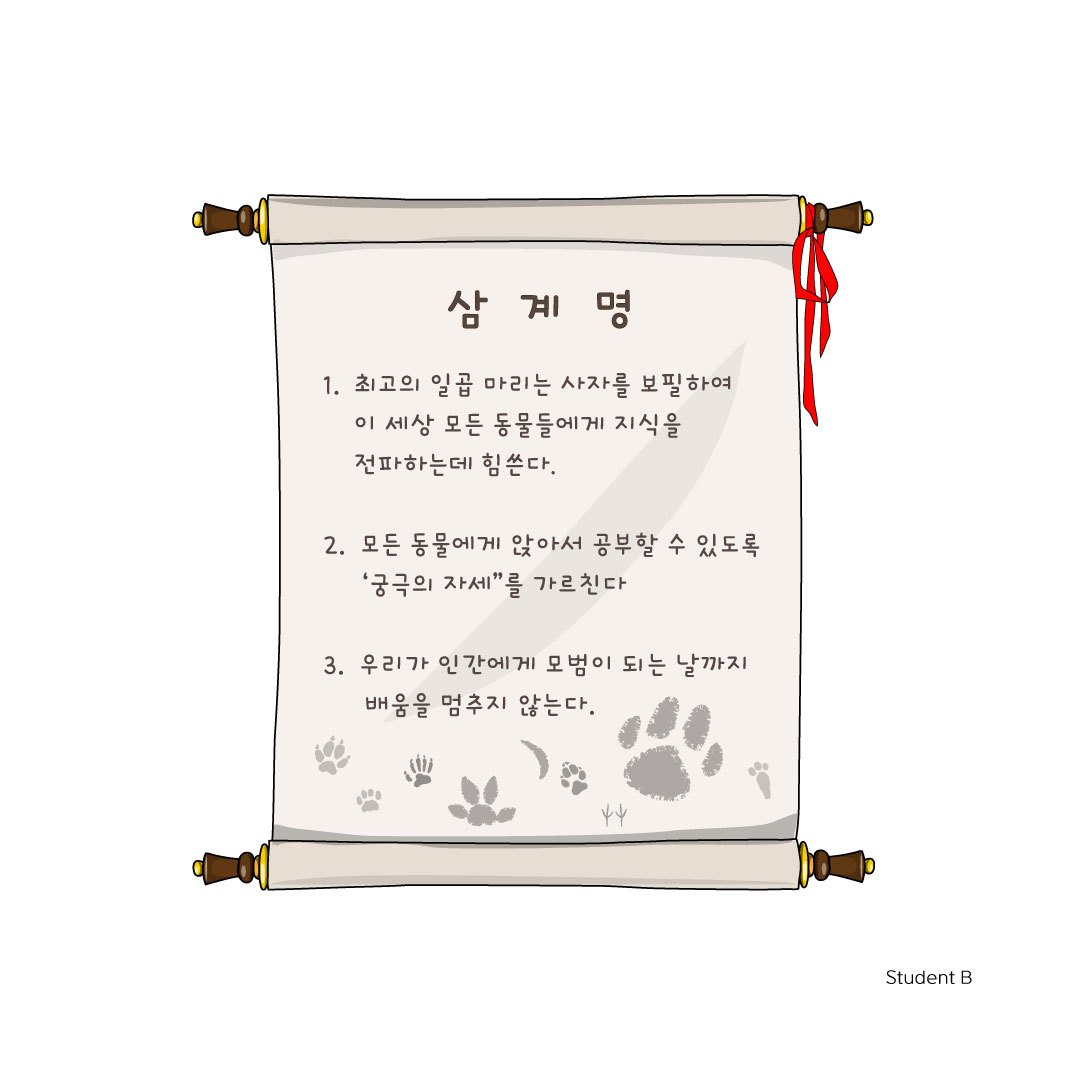 삼 계 명
1. 최고의 일곱 마리는 사자를 보필하여
이 세상 모든 동물들에게 지식을
전파하는데 힘쓴다.
2. 모든 동물에게 앉아서 공부할 수 있도록
‘궁극의 자세”를 가르친다
3. 우리가 인간에게 모범이 되는 날까지
배움을 멈추지 않는다.
Student B